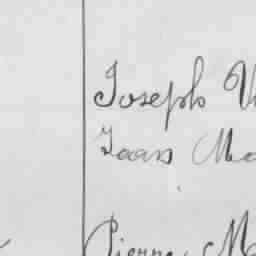 Joseph V
Isaas Ma
Pierre M